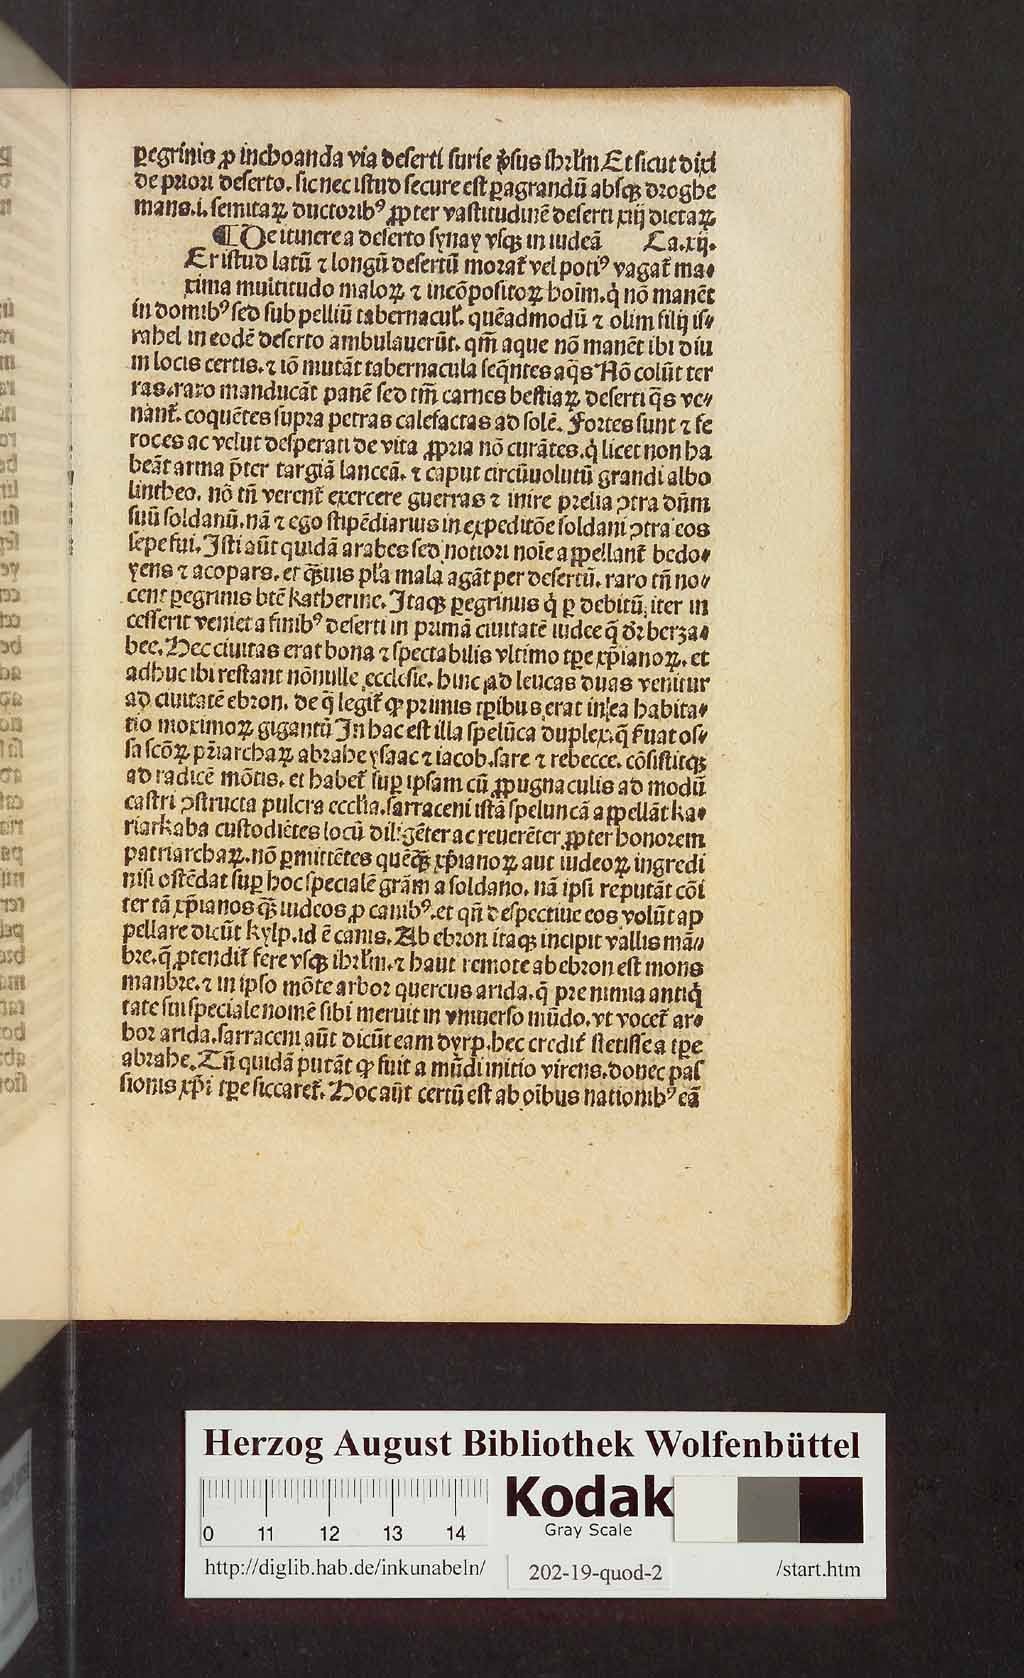 ꝑegrinis ꝓ inchoanda via deserti surie ꝟsus ihrl̄m Et sicut dixi
de priori deserto. sic nec istud secure est ꝑagrandū absqꝫ droghe
mans .i. semitaꝝ ductoribꝰ ꝓpter vastitudinē deserti xiij dietaꝝ
¶ De itinere a deserto synay vsqꝫ in iudeā Ca. xij.
Er istud latū ⁊ longū desertū morat᷑ vel potiꝰ vagat᷑ ma⸗
xima multitudo maloꝝ ⁊ incōpositoꝝ hoīm. q̇ nō manēt
in domibꝰ sed sub pelliū tabernacul᷑. quēadmodū ⁊ olim filij is⸗
rahel in eodē deserto ambulauerūt. qm̄ aque nō manēt ibi diu
in locis certis. ⁊ iō mutāt tabernacula seq̄ntes aq̄s Nō colūt ter
ras. raro manducāt panē sed tm̄ carnes bestiaꝝ deserti q̄s ve⸗
nant᷑. coquētes supra petras calefactas ad solē. Fortes sunt ⁊ fe
roces ac velut desperati de vita ꝓpria nō curātes. q̇ licet non ha
beāt arma p̄ter targiā lanceā. ⁊ caput circūuolutū grandi albo
lintheo. nō tn̄ verent᷑ exercere guerras ⁊ inire prelia ↄtra dn̄m
suū soldanū. nā ⁊ ego stipēdiarius in expeditōe soldani ↄtra eos
sepe fui. Isti aūt quidā arabes sed notiori noīe appellant᷑ bedo⸗
yens ⁊ acopars. et qꝫ̄uis pl᷑a mala agāt per desertū. raro tn̄ no⸗
cent ꝑegrinis btē katherine. Itaqꝫ ꝑegrinus q̇ ꝑ debitū iter in
cesserit veniet a finibꝰ deserti in primā ciuitatē iudee q̄ dr̄ berza⸗
bee. Hec ciuitas erat bona ⁊ spectabilis vltimo tꝑe xp̄ianoꝝ. et
adhuc ibi restant nōnulle ecclesie. hinc ad leucas duas venitur
ad ciuitatē ebron. de q̄ legit᷑ ꝙ primis tꝑibus erat in ea habita⸗
tio moximoꝝ gigantū In hac est illa spelūca duplex. q̄ ẜuat os⸗
sa scōꝝ pr̄iarchaꝝ abrahe ysaac ⁊ iacob. sare ⁊ rebecce. cōsistitqꝫ
ad radicē mōtis. et habet᷑ suꝑ ipsam cū ꝓpugnaculis ad modū
castri ↄstructa pulcra eccl᷑ia. sarraceni istā speluncā appellāt ka⸗
riarkaba custodiētes locū diligēter ac reuerēter ꝓpter honorem
patriarchaꝝ. nō ꝑmittētes quēqꝫ̄ xp̄ianoꝝ aut iudeoꝝ ingredi
nisi ostēdat suꝑ hoc specialē grām a soldano. nā ipsi reputāt cōi
ter tā xp̄ianos qꝫ̄ iudeos ꝓ canibꝰ. et qn̄ despectiue eos volūt ap
pellare dicūt kylp. id ē canis. Ab ebron itaqꝫ incipit vallis mā⸗
bre. q̄ ꝓtendit᷑ fere vsqꝫ ihrl̄m. ⁊ haut remote ab ebron est mons
manbre. ⁊ in ipso mōte arbor quercus arida. q̄ pre nimia antiq̇
tate sui speciale nomē sibi meruit in vniuerso mūdo. vt vocet᷑ ar⸗
bor arida. sarraceni aūt dicūt eam dyrp. hec credit᷑ stetisse a tꝑe
abrahe. Tn̄ quidā putāt ꝙ fuit a mūdi initio virens. donec pas
sionis xp̄i tꝑe siccaret᷑. Hoc aūt certū est ab oībus nationibꝰ eā
Herzog August Bibliothek Wolfenbüttel
0 11 12 13 14
Kodak
Gray Scale
http://diglib.hab.de/inkunabeln/ 202-19-quod-2 /start.htm